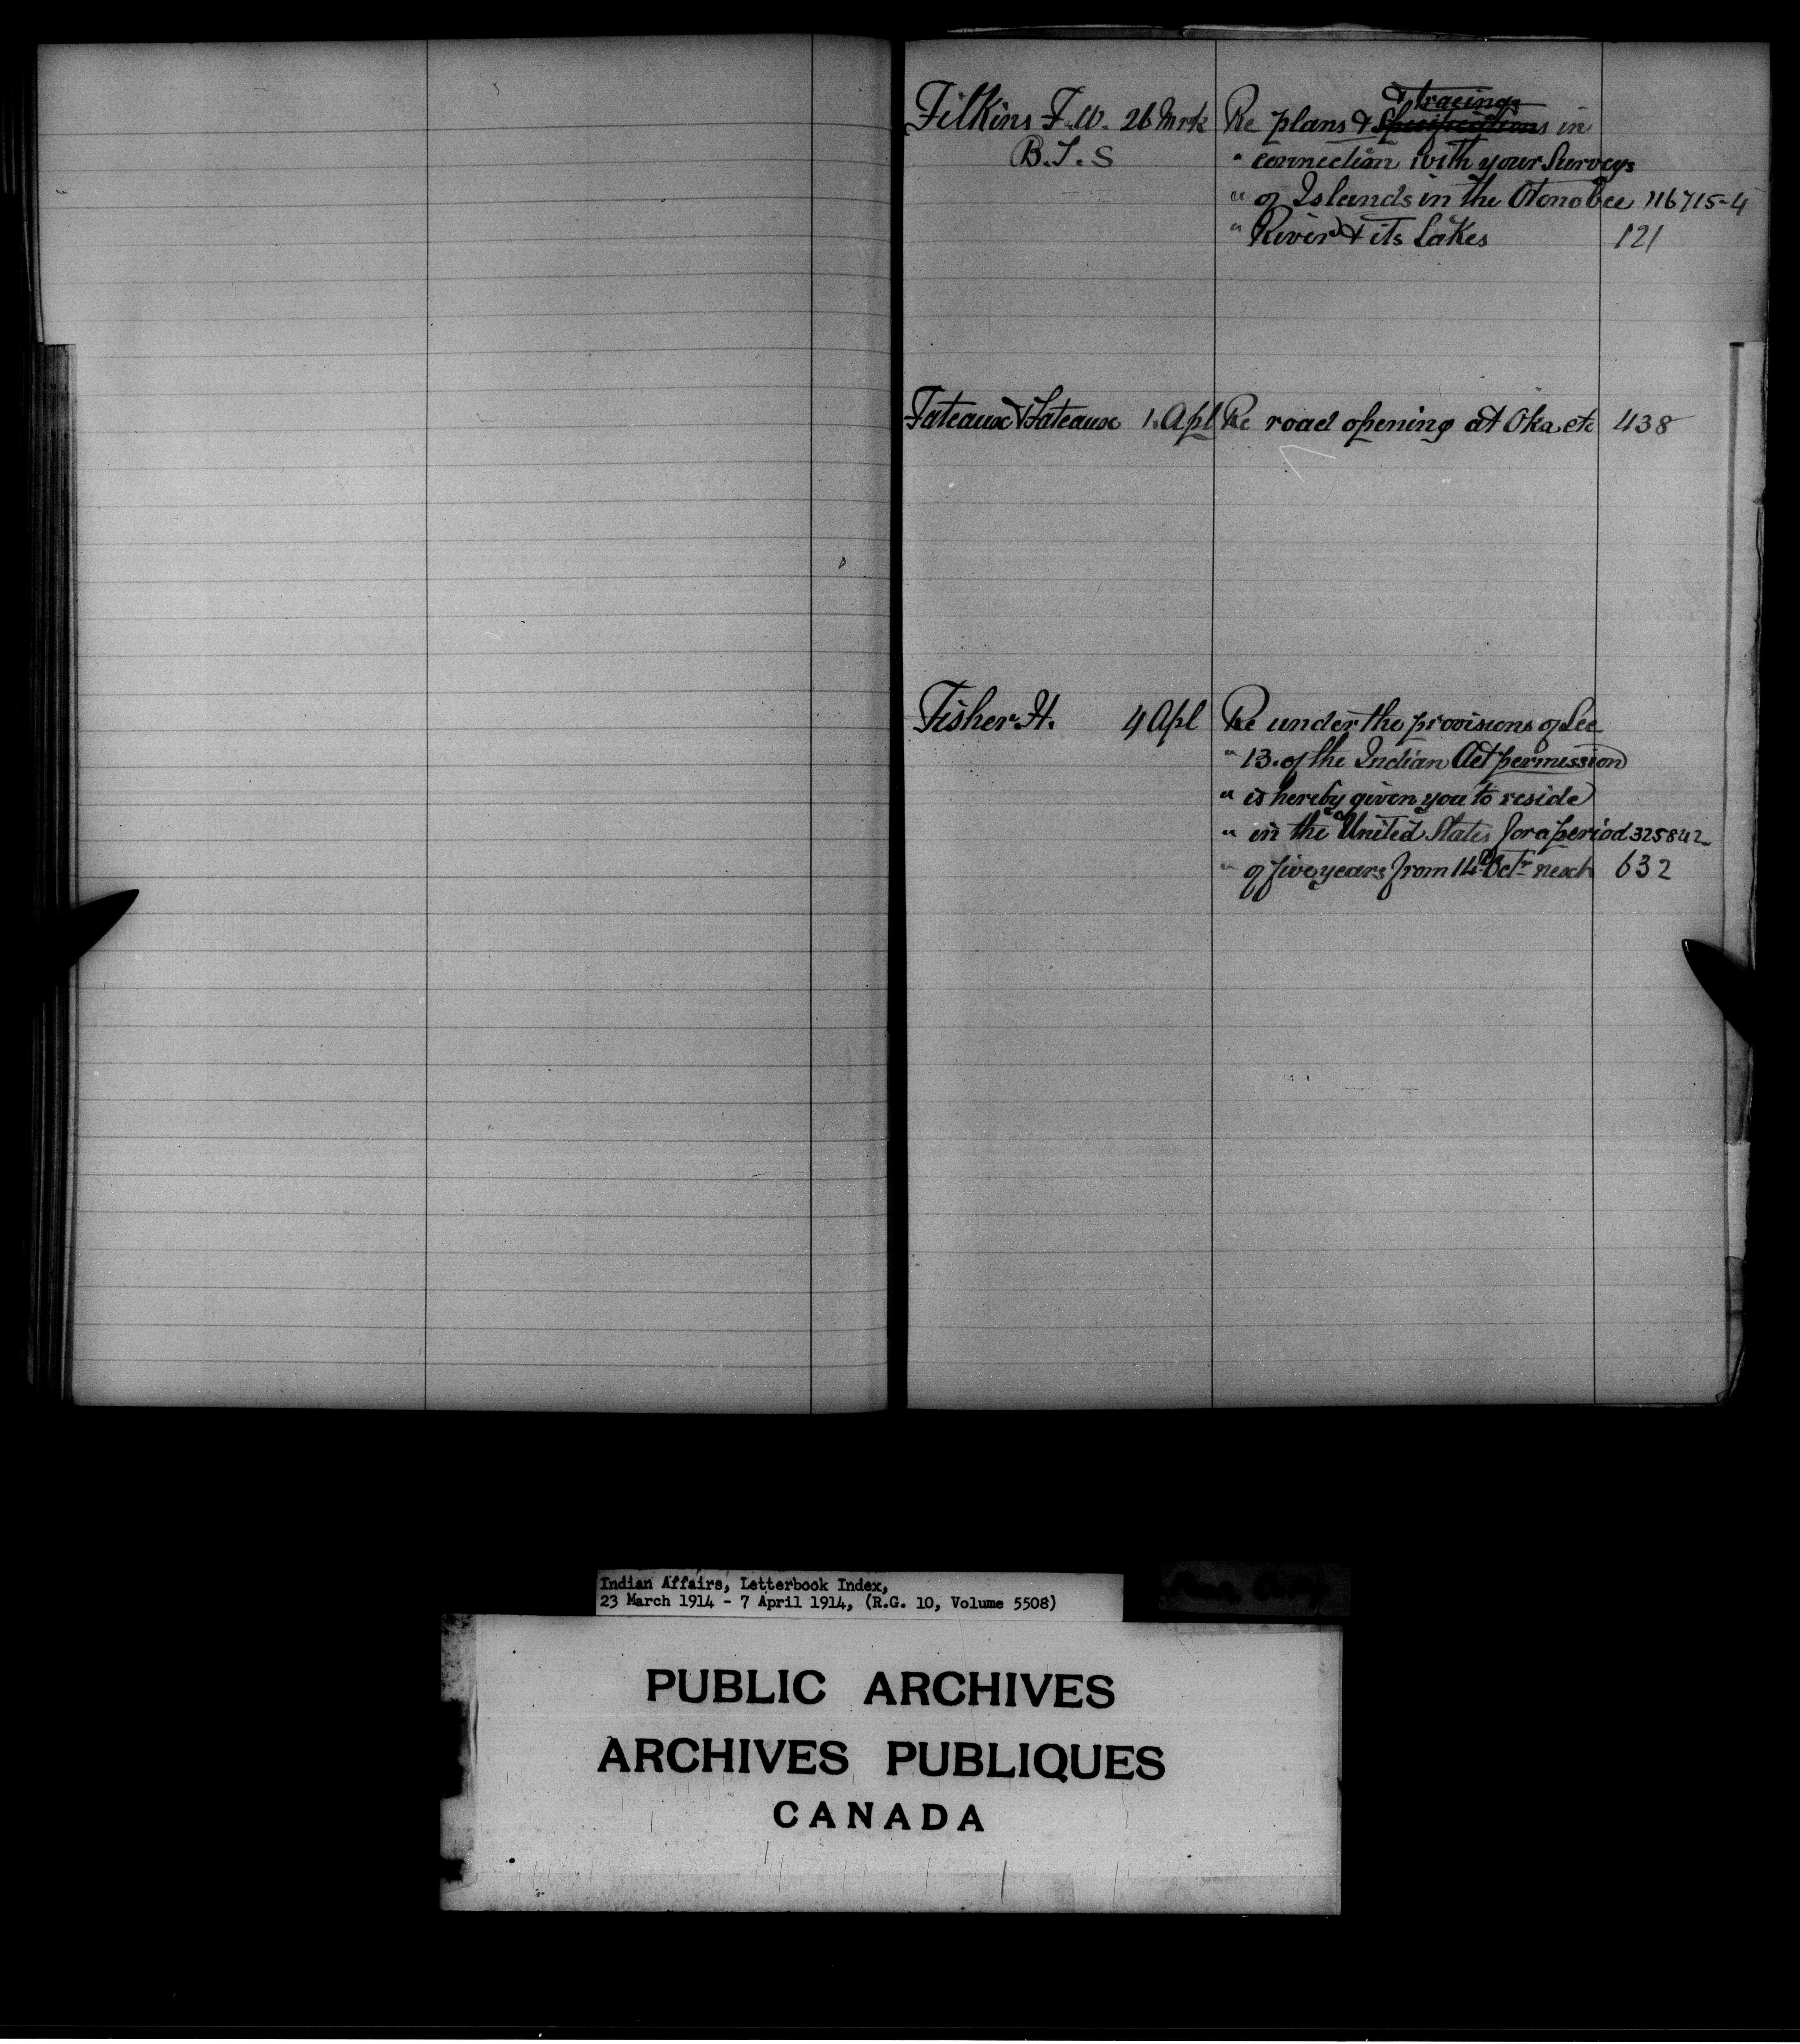 Filkins F. W. 26 Mrk Re plans & ~~Specifications~~ & tracings in
B.T.S " connection with your Surveys
" of Islands in the Otonobee 116715-4
" River & its Lakes 121
Fateaux & Fateaux 1. Apl Re road opening at Oka etc 438
Fisher H. 4 Apl Re under the provisions of Sec
" 13. of the Indian Act permission
" is hereby given you to reside
" in the United States for a period 325842
" of five years from 14th Octr next 632
Indian Affairs, Letterbook Index,
23 March 1914 - 7 April 1914, (R.G. 10, Volume 5508)
PUBLIC ARCHIVES
ARCHIVES PUBLIQUES
CANADA